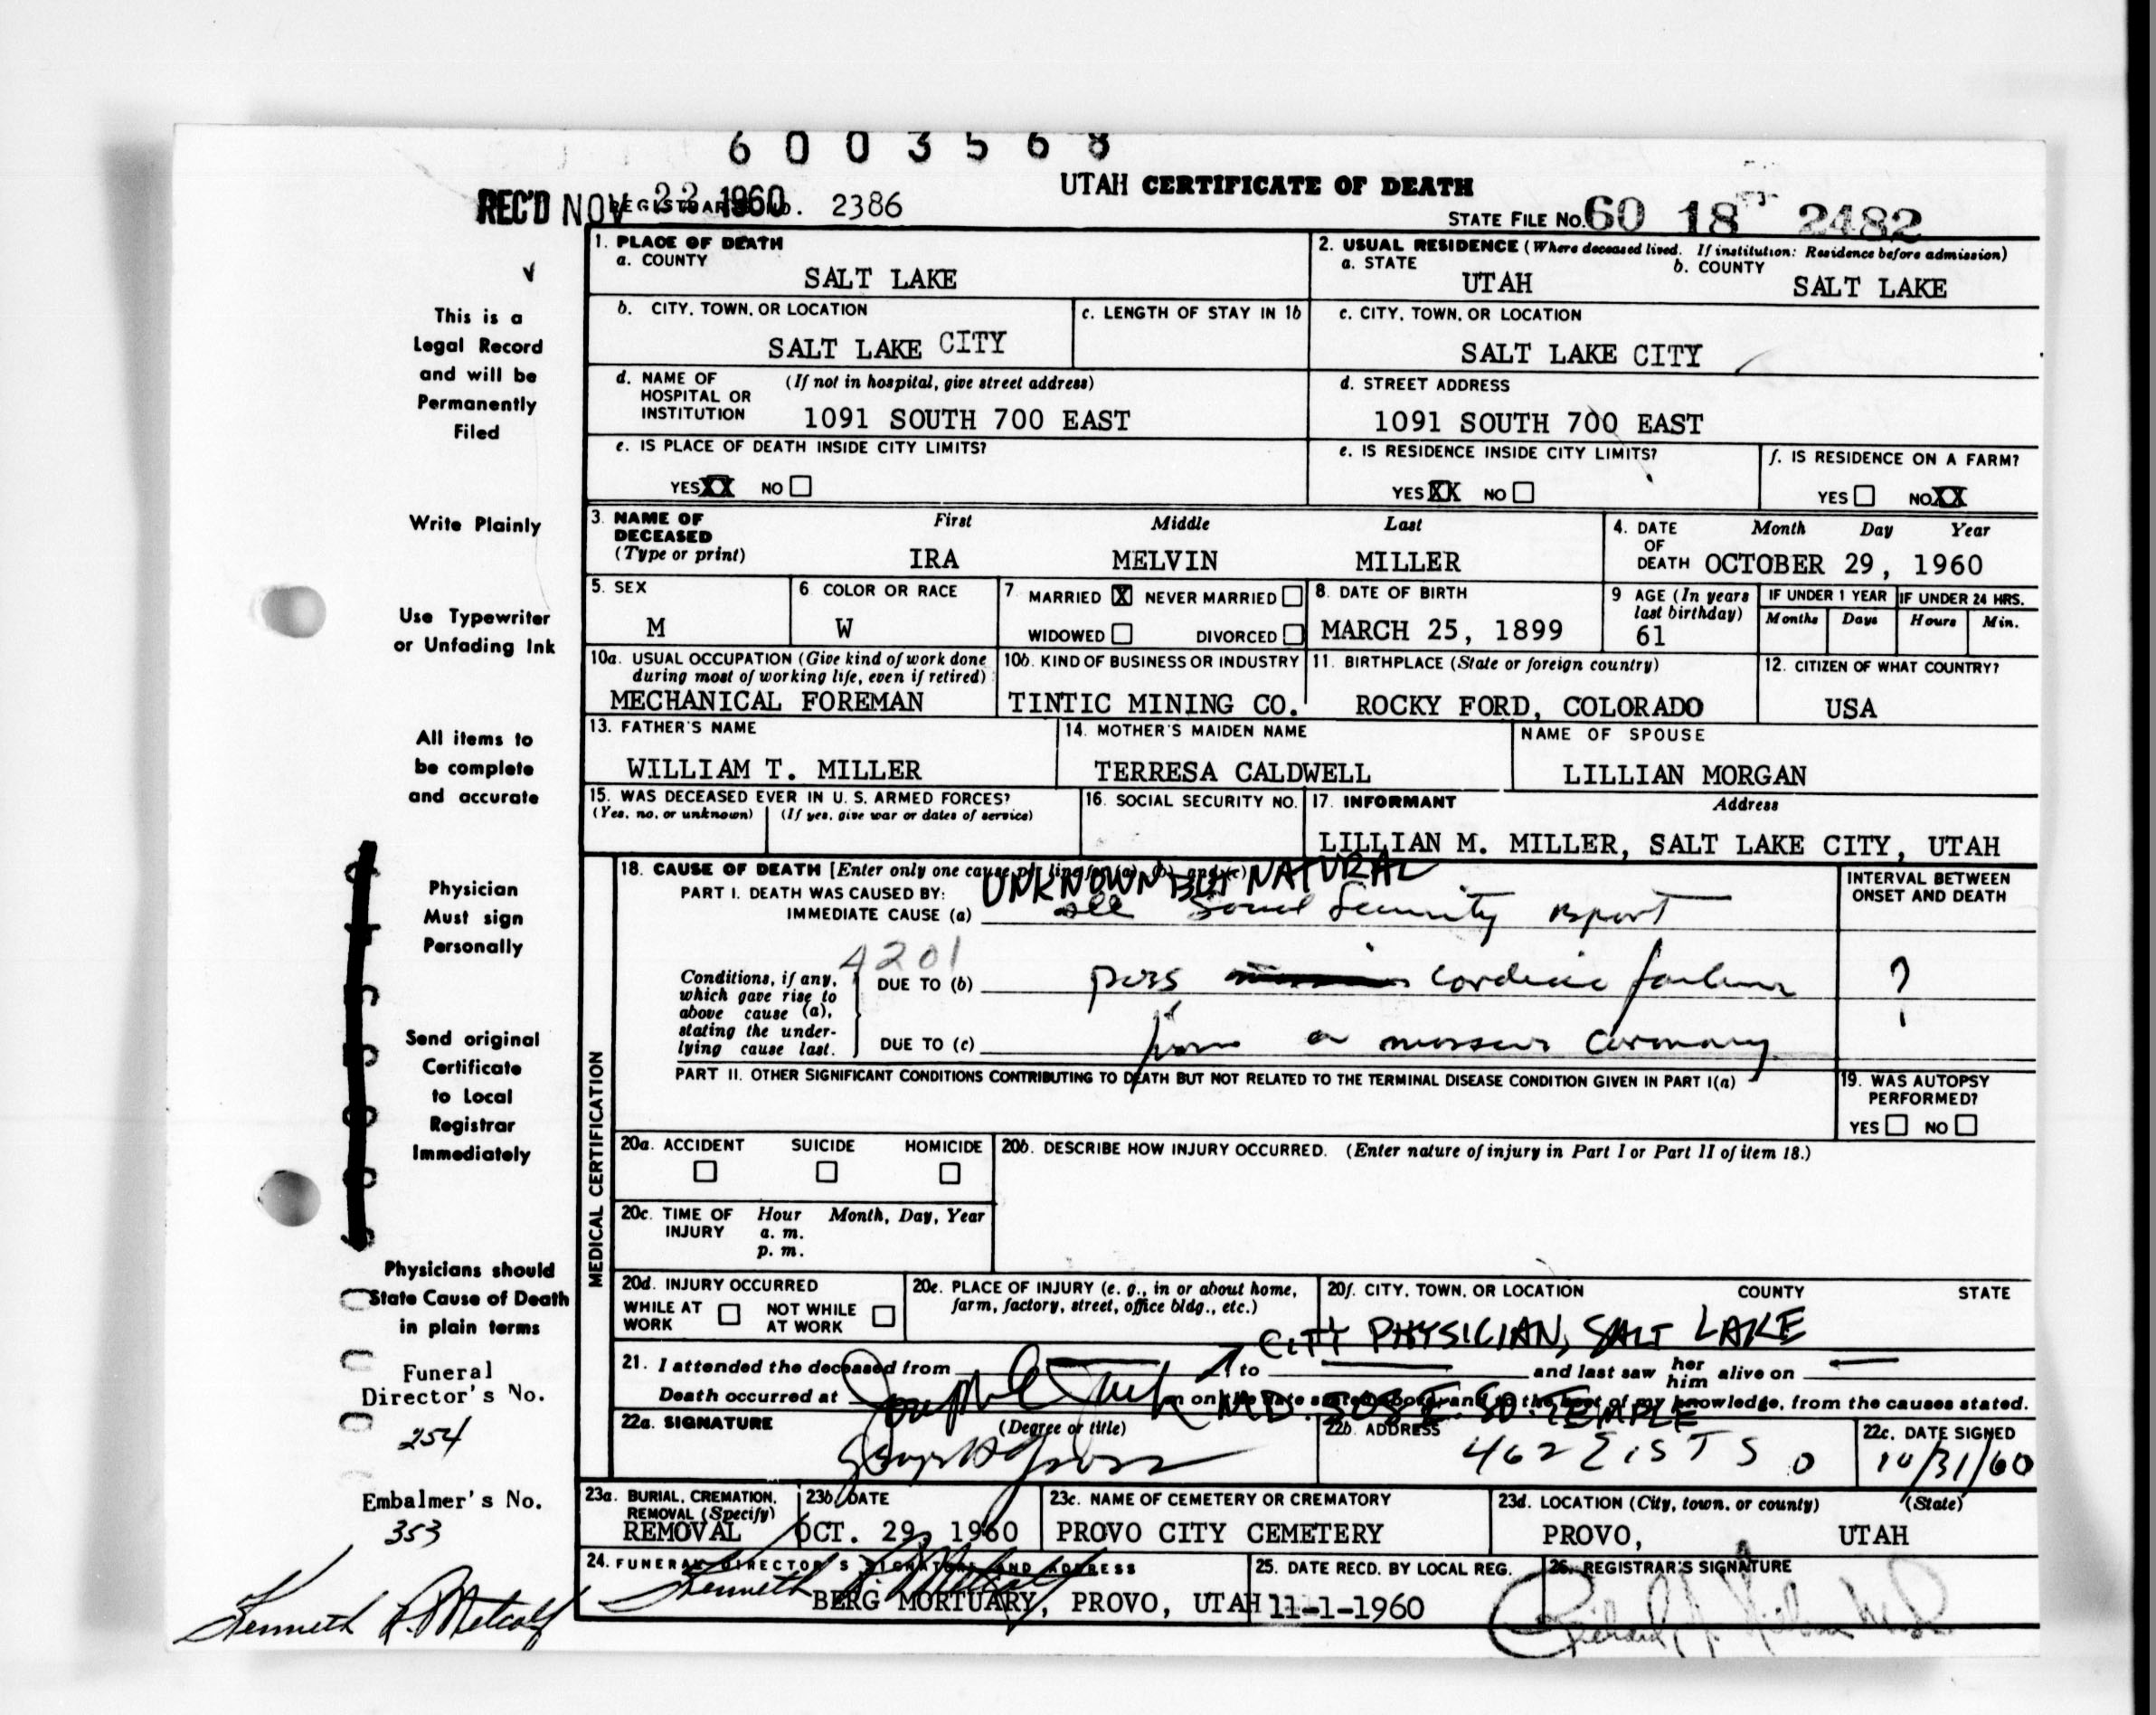 6003568
REC'D NOV 22 1960. 2386
UTAH CERTIFICATE OF DEATH
STATE FILE No. 60 18 2482
1. PLACE OF DEATH
a. COUNTY
SALT LAKE
2. USUAL RESIDENCE (Where deceased lived. If institution: Residence before admission)
a. STATE
UTAH
b. COUNTY
SALT LAKE
b. CITY, TOWN, OR LOCATION
SALT LAKE CITY
c. LENGTH OF STAY IN 1b
c. CITY, TOWN, OR LOCATION
SALT LAKE CITY
d. NAME OF HOSPITAL OR INSTITUTION
(If not in hospital, give street address)
1091 SOUTH 700 EAST
d. STREET ADDRESS
1091 SOUTH 700 EAST
e. IS PLACE OF DEATH INSIDE CITY LIMITS?
YES XX NO
e. IS RESIDENCE INSIDE CITY LIMITS?
YES XX NO
f. IS RESIDENCE ON A FARM?
YES NO XX
3. NAME OF DECEASED
(Type or print)
First Middle Last
IRA MELVIN MILLER
4. DATE OF DEATH
Month Day Year
OCTOBER 29, 1960
5. SEX
M
6. COLOR OR RACE
W
7. MARRIED X NEVER MARRIED
WIDOWED DIVORCED
8. DATE OF BIRTH
MARCH 25, 1899
9 AGE (In years last birthday)
61
IF UNDER 1 YEAR
Months Days
IF UNDER 24 HRS.
Hours Min.
10a. USUAL OCCUPATION (Give kind of work done during most of working life, even if retired)
MECHANICAL FOREMAN
10b. KIND OF BUSINESS OR INDUSTRY
TINTIC MINING CO.
11. BIRTHPLACE (State or foreign country)
ROCKY FORD, COLORADO
12. CITIZEN OF WHAT COUNTRY?
USA
13. FATHER'S NAME
WILLIAM T. MILLER
14. MOTHER'S MAIDEN NAME
TERRESA CALDWELL
NAME OF SPOUSE
LILLIAN MORGAN
15. WAS DECEASED EVER IN U. S. ARMED FORCES?
(Yes, no, or unknown) (If yes, give war or dates of service)
16. SOCIAL SECURITY NO.
17. INFORMANT Address
LILLIAN M. MILLER, SALT LAKE CITY, UTAH
MEDICAL CERTIFICATION
18. CAUSE OF DEATH [Enter only one cause per line for (a), (b), and (c)]
UNKNOWN BUT NATURAL
PART I. DEATH WAS CAUSED BY:
IMMEDIATE CAUSE (a) see Social Security report
INTERVAL BETWEEN ONSET AND DEATH
4201
Conditions, if any, which gave rise to above cause (a), stating the underlying cause last.
DUE TO (b) poss cardiac failure ?
DUE TO (c) from a massive coronary
PART II. OTHER SIGNIFICANT CONDITIONS CONTRIBUTING TO DEATH BUT NOT RELATED TO THE TERMINAL DISEASE CONDITION GIVEN IN PART I(a)
19. WAS AUTOPSY PERFORMED?
YES NO
20a. ACCIDENT SUICIDE HOMICIDE
20b. DESCRIBE HOW INJURY OCCURRED. (Enter nature of injury in Part I or Part II of item 18.)
20c. TIME OF INJURY
Hour Month, Day, Year
a. m.
p. m.
20d. INJURY OCCURRED
WHILE AT WORK NOT WHILE AT WORK
20e. PLACE OF INJURY (e. g., in or about home, farm, factory, street, office bldg., etc.)
20f. CITY, TOWN, OR LOCATION COUNTY STATE
CITY PHYSICIAN, SALT LAKE
21. I attended the deceased from to and last saw her him alive on
Death occurred at m on the date stated above, and to the best of my knowledge, from the causes stated.
M.D. E. SO. TEMPLE
22a. SIGNATURE (Degree or title)
22b. ADDRESS
22c. DATE SIGNED
10/31/60
23a. BURIAL, CREMATION, REMOVAL (Specify)
REMOVAL
23b. DATE
OCT. 29, 1960
23c. NAME OF CEMETERY OR CREMATORY
PROVO CITY CEMETERY
23d. LOCATION (City, town, or county) (State)
PROVO, UTAH
24. FUNERAL DIRECTOR'S SIGNATURE AND ADDRESS
Kenneth R. Metcalf
BERG MORTUARY, PROVO, UTAH
25. DATE RECD. BY LOCAL REG.
11-1-1960
26. REGISTRAR'S SIGNATURE
This is a
Legal Record
and will be
Permanently
Filed
Write Plainly
Use Typewriter
or Unfading Ink
All items to
be complete
and accurate
Physician
Must sign
Personally
Send original
Certificate
to Local
Registrar
Immediately
Physicians should
State Cause of Death
in plain terms
Funeral
Director's No.
254
Embalmer's No.
353
Kenneth R. Metcalf